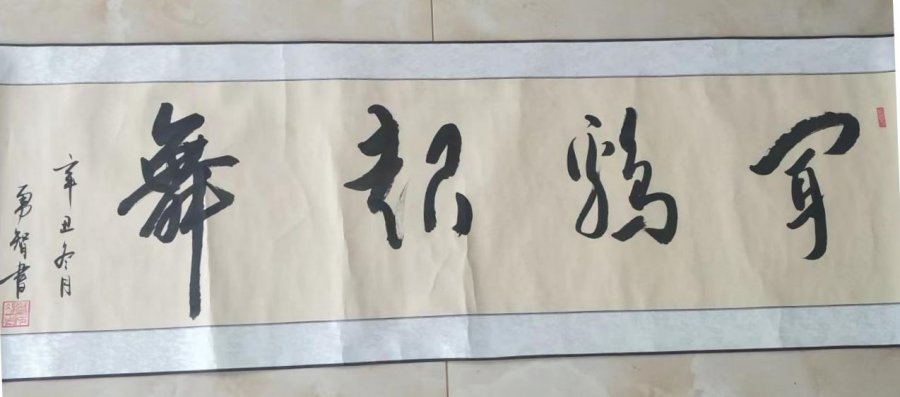 闻鸡起舞
辛丑冬月
勇智書